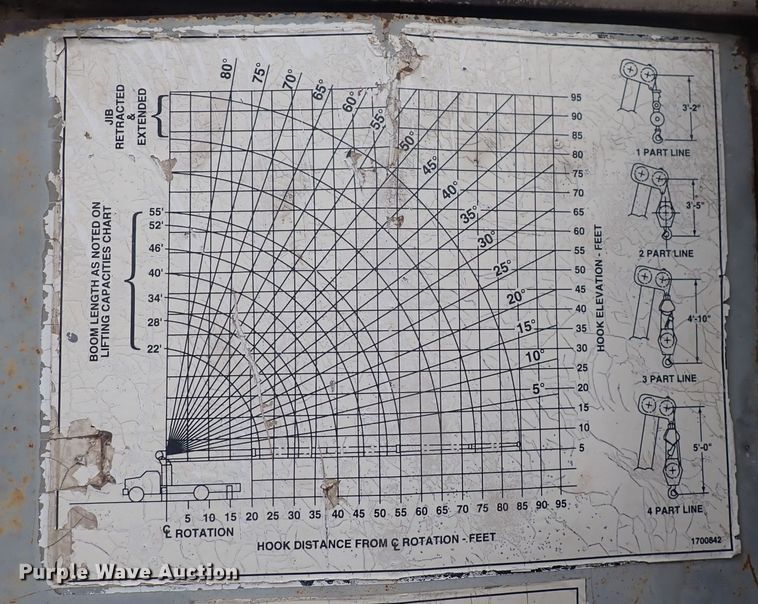 80°
75°
70°
65°
60°
55°
50°
45°
40°
35°
30°
25°
20°
15°
10°
5°
JIB
RETRACTED
&
EXTENDED
BOOM LENGTH AS NOTED ON
LIFTING CAPACITIES CHART
55'
52'
46'
40'
34'
28'
22'
95
90
85
80
75
70
65
60
55
50
45
40
35
30
25
20
15
10
5
HOOK ELEVATION - FEET
3'-2"
1 PART LINE
3'-5"
2 PART LINE
4'-10"
3 PART LINE
5'-0"
4 PART LINE
5 10 15 20 25 30 35 40 45 50 55 60 65 70 75 80 85 90 95
℄ ROTATION
HOOK DISTANCE FROM ℄ ROTATION - FEET
1700842
Purple Wave Auction